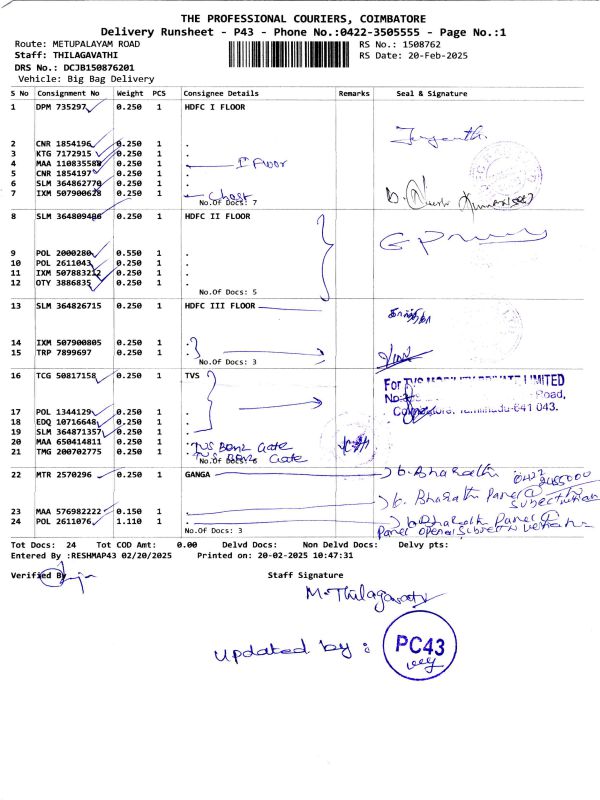 THE PROFESSIONAL COURIERS, COIMBATORE
Delivery Runsheet - P43 - Phone No.:0422-3505555 - Page No.:1
Route: METUPALAYAM ROAD RS No.: 1508762
Staff: THILAGAVATHI RS Date: 20-Feb-2025
DRS No.: DCJB150876201
Vehicle: Big Bag Delivery
S No Consignment No Weight PCS Consignee Details Remarks Seal & Signature
1 DPM 735297 0.250 1 HDFC I FLOOR
2 CNR 1854196 0.250 1 .
3 KTG 7172915 0.250 1 .
4 MAA 110835588 0.250 1 . Ist Floor
5 CNR 1854197 0.250 1 .
6 SLM 364862770 0.250 1 .
7 IXM 507900628 0.250 1 .
No.Of Docs: 7
8 SLM 364809406 0.250 1 HDFC II FLOOR
9 POL 2000280 0.550 1 .
10 POL 2611043 0.250 1 .
11 IXM 507883212 0.250 1 .
12 OTY 3886835 0.250 1 .
No.Of Docs: 5
13 SLM 364826715 0.250 1 HDFC III FLOOR
14 IXM 507900805 0.250 1 .
15 TRP 7899697 0.250 1 .
No.Of Docs: 3
16 TCG 50817158 0.250 1 TVS
For TVS MOBILITY PRIVATE LIMITED
Road,
Coimbatore, Tamilnadu-641 043.
17 POL 1344129 0.250 1 .
18 EDQ 10716648 0.250 1 .
19 SLM 364871357 0.250 1 .
20 MAA 650414811 0.250 1 . TVS Benz Gate
21 TMG 200702775 0.250 1 . TVS Benz Gate
No.Of Docs: 6
22 MTR 2570296 0.250 1 GANGA b. Bharath 0422
23 MAA 576982222 0.150 1 . b. Bharath Panel
24 POL 2611076 1.110 1 . b. Bharath Panel
No.Of Docs: 3
Tot Docs: 24 Tot COD Amt: 0.00 Delvd Docs: Non Delvd Docs: Delvy pts:
Entered By :RESHMAP43 02/20/2025 Printed on: 20-02-2025 10:47:31
Verified By Staff Signature
M. Thilagavathi
Updated by : PC43